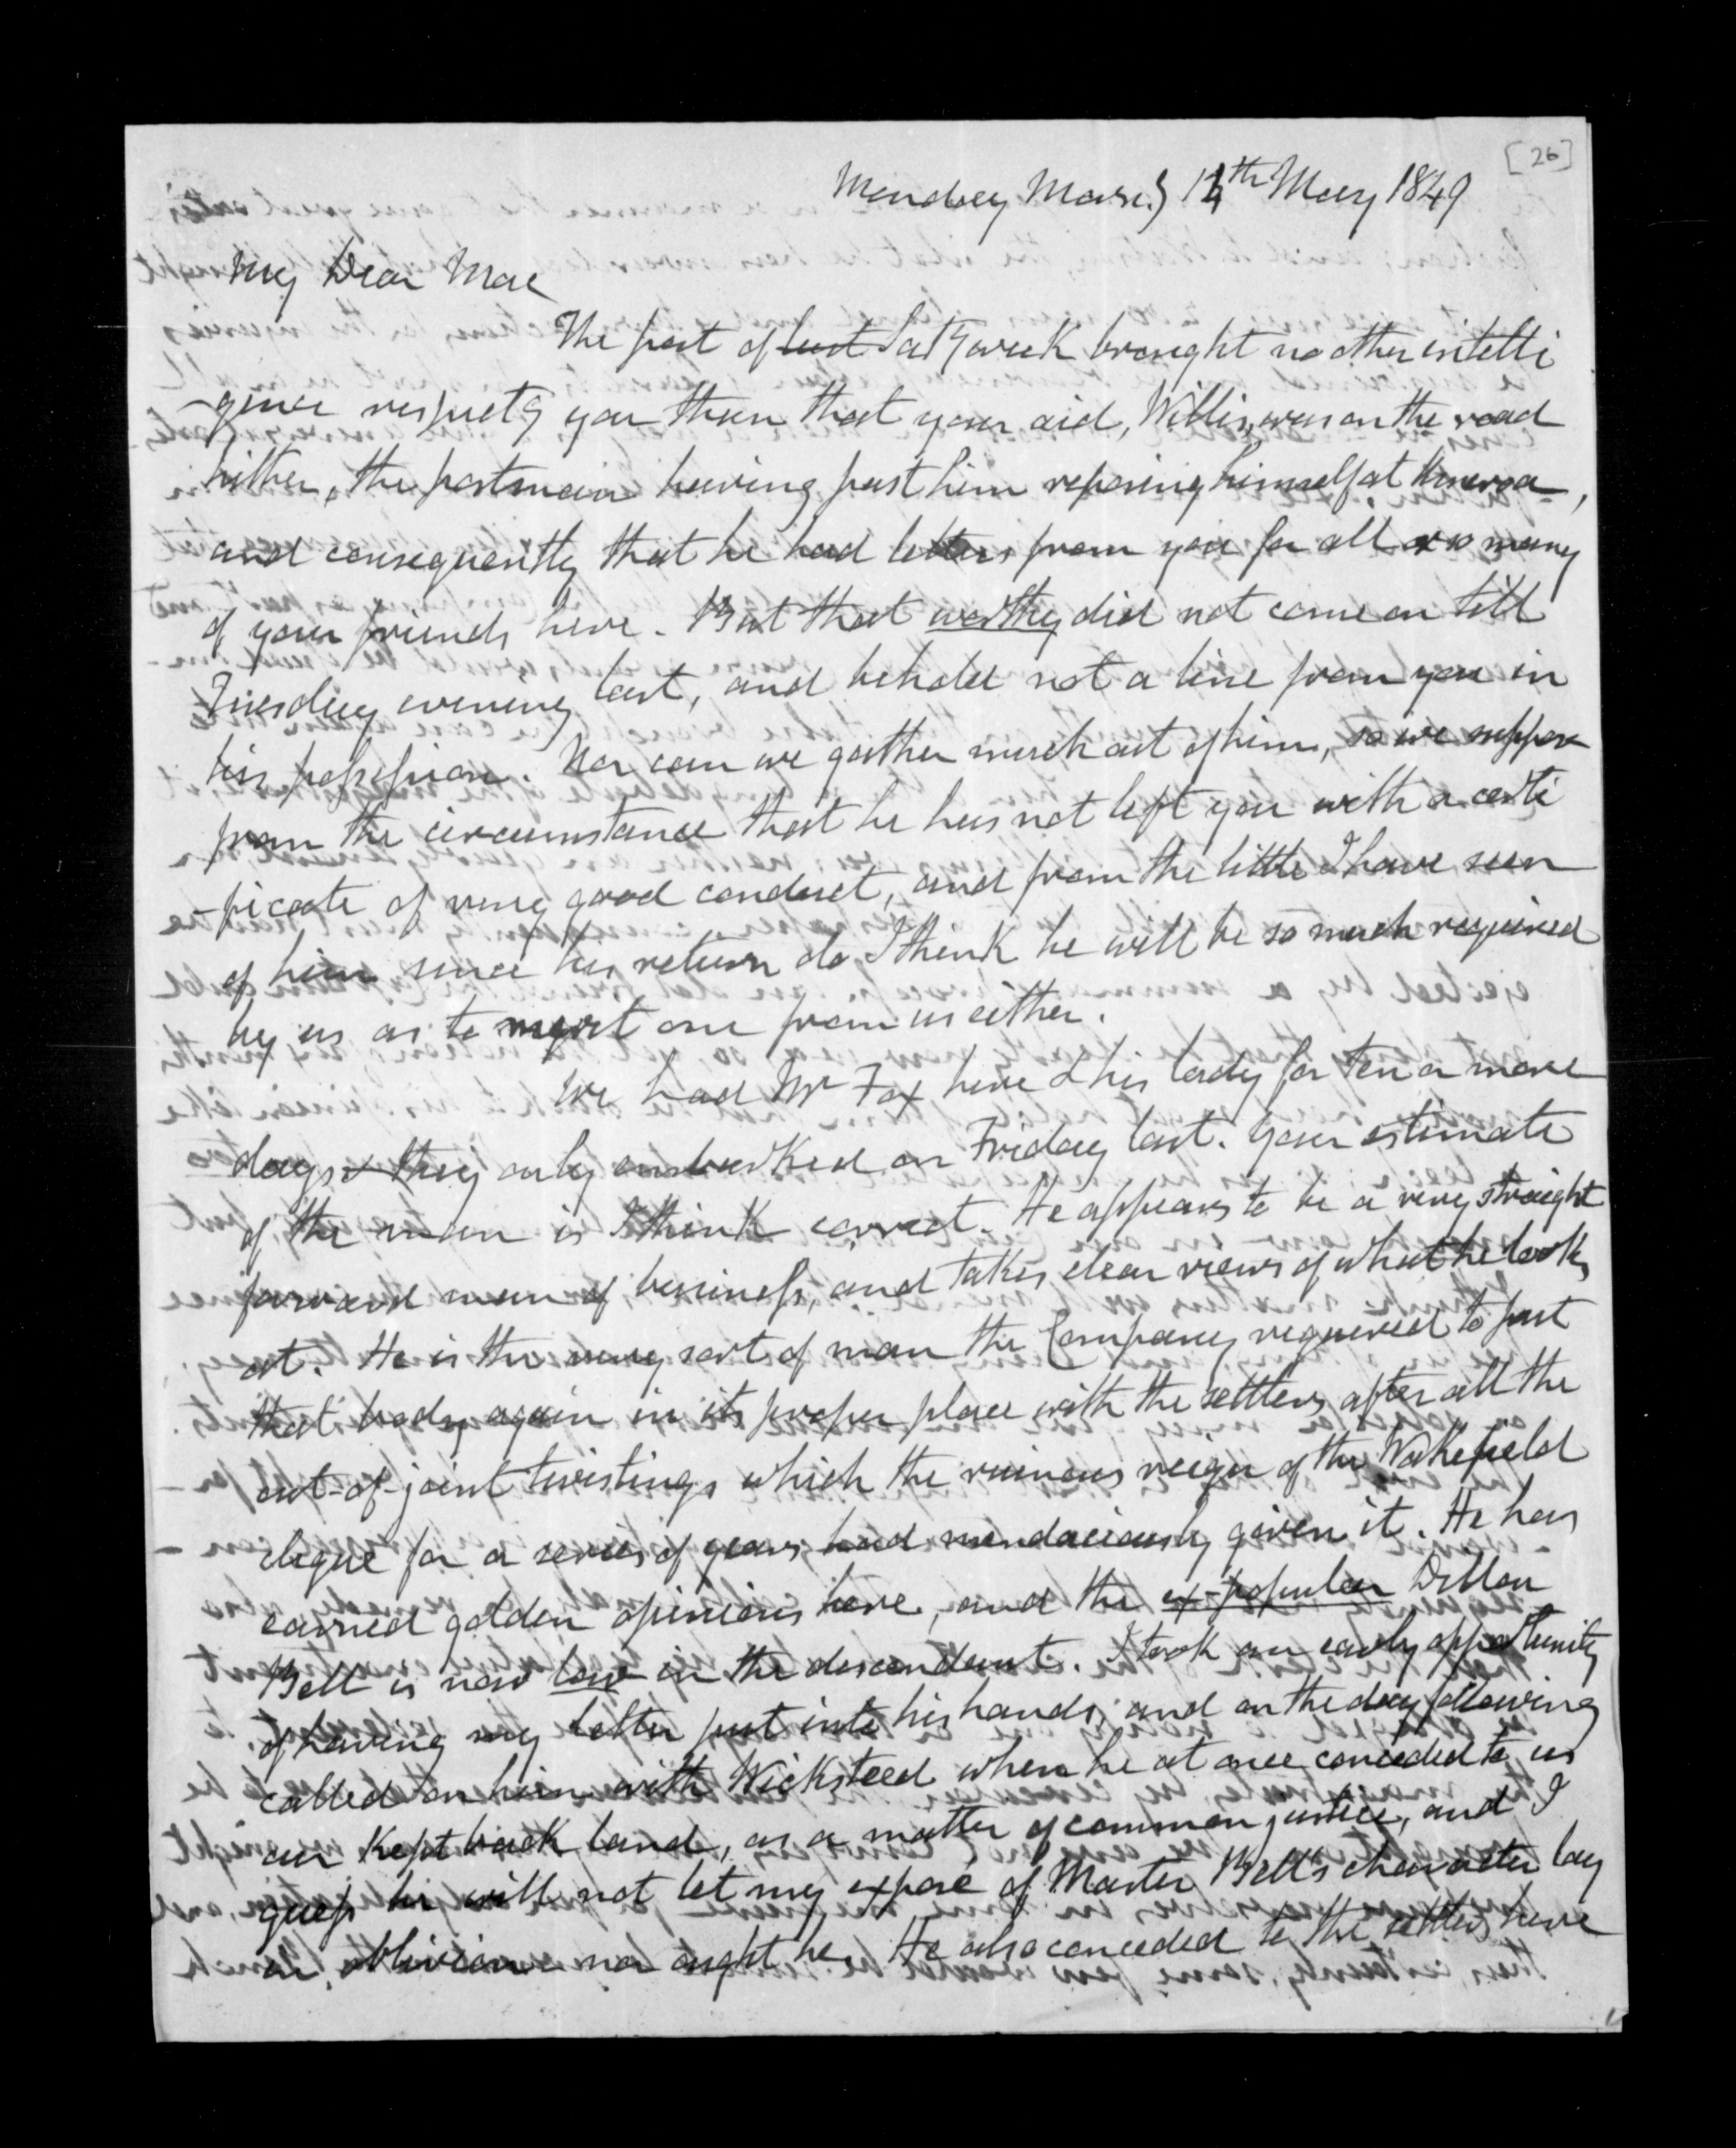 [26]
Monday Morng 14th May 1849
My Dear Mac
The post of last Satʸ week brought no other intelli
-gence respectg you than that your aid, Willis, was on the road
hither, the postman having past him reposing himself at
and consequently that he had letters from you for all or so many
of your friends here. But that worthy did not come on till
Tuesday evening last, and behold not a line from you in
his possession. Nor can we gather much out of him, so we suppose
from the circumstance that he has not left you with a certi
-ficate of very good conduct, and from the little I have seen
of him since his return do I think he will be so much required
by us as to merit one from us either.
We had Mr Fox here & his lady for ten or more
days & they only embarked on Friday last. Your estimate
of the man is I think correct. He appears to be a very straight
forward man of business, and takes clear views of what he looks
at. He is the very sort of man the Company required to put
that body again in its proper place with the settlers after all the
out-of-joint twistings which the ruinous reign of the Wakefield
clique for a series of years had mendaciously given it. He has
earned golden opinions here, and the ex-popular Dillon
Bell is now low in the descendant. I took an early opportunity
of having my letter put into his hands, and on the day following
called on him with Wicksteed when he at once conceded to us
our kept back land, as a matter of common justice, and I
guess he will not let my exposé of Master Bell's character lay
in oblivion nor ought he. He also conceded to the settlers here